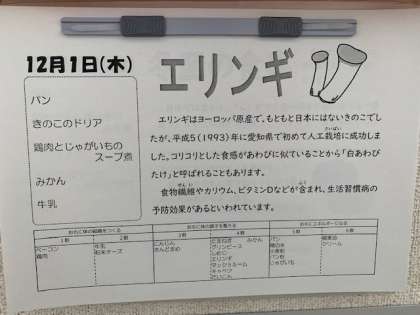 12月1日(木)
エリンギ
パン
きのこのドリア
鶏肉とじゃがいもの
スープ煮
みかん
牛乳
エリンギはヨーロッパ原産で、もともと日本にはないきのこでし
たが、平成5(1993)年に愛知県で初めて人工栽培に成功しまし
た。コリコリとした食感があわびに似ていることから「白あわび
たけ」と呼ばれることもあります。
食物繊維やカリウム、ビタミンDなどが含まれ、生活習慣病の
予防効果があるといわれています。
おもに体の組織をつくる おもに体の調子を整える おもにエネルギーになる
1群 2群 3群 4群 5群 6群
ベーコン
鶏肉
牛乳
粉末チーズ
にんじん
さんどまめ
たまねぎ みかん
グリンピース
しめじ
エリンギ
マッシュルーム
キャベツ
だいこん
パン
小麦粉
じゃがいも
クリーム